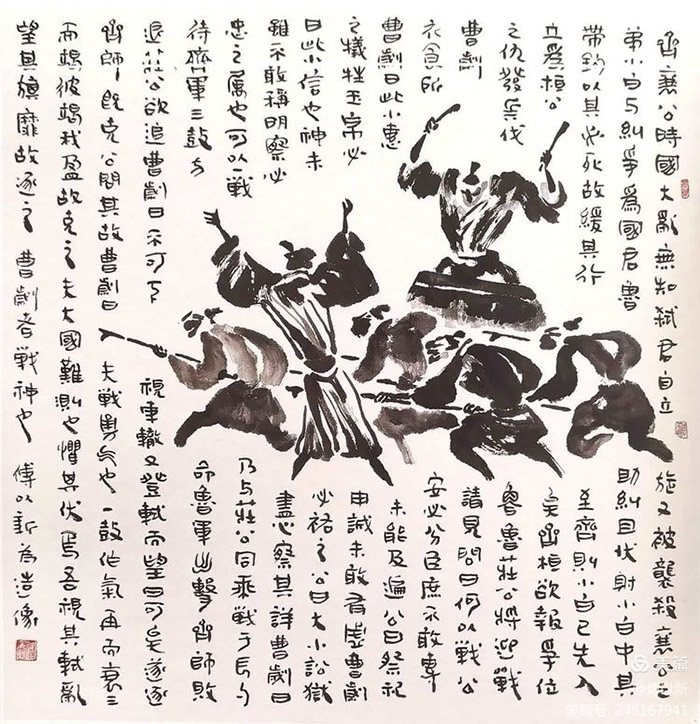 齊襄公時國大亂無知弒君自立旋又被襲殺襄公之
弟小白与糾爭爲國君魯助糾且伏射小白中其
帶鈎以其必死故緩其行至齊則小白已先入
立爲桓公矣齊桓欲報爭位
之仇發兵伐魯魯莊公將迎戰
曹劌請見問曰何以戰公曰
衣食所安必分臣庶不敢專
曹劌曰此小惠未能及遍公曰祭祀
之犧牲玉帛必申誠未敢有虛曹劌
曰此小信也神未必祐之公曰大小訟獄
雖不敢稱明察必盡心察其詳曹劌曰
忠之屬也可以一戰乃与莊公同乘戰于長勺
待齊軍三鼓方命魯軍出擊齊師敗
退莊公欲追曹劌曰不可乃視車轍又登軾而望曰可矣遂逐
齊師既克公問其故曹劌曰夫戰勇气也一鼓作气再而衰三
而竭彼竭我盈故克之夫大國難測也懼其伏焉吾視其軾亂
望其旗靡故逐之曹劌者戰神也傅以新為造像
美篇
美篇号: 248167941